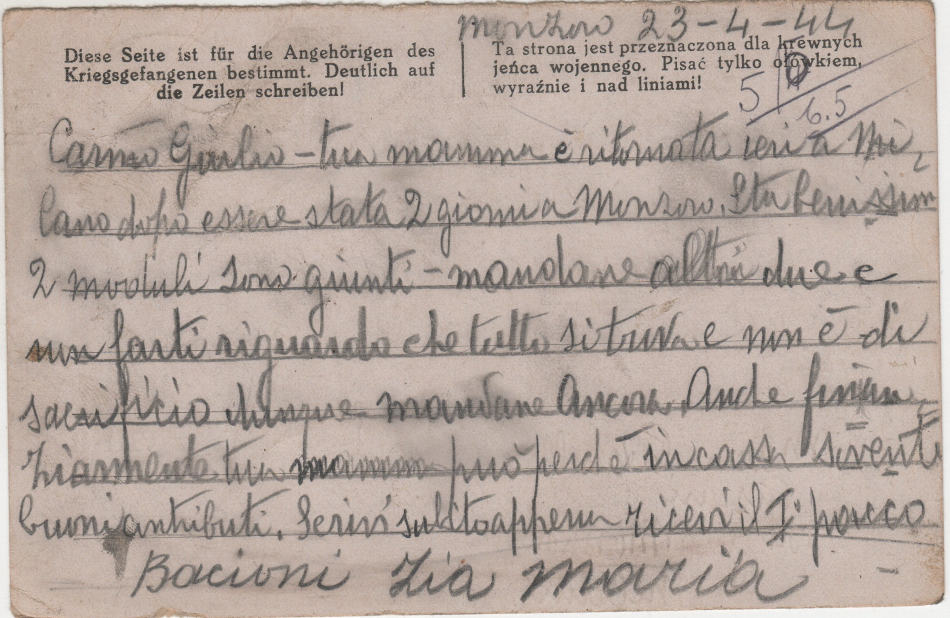 Monzoro 23-4-44
Diese Seite ist für die Angehörigen des
Kriegsgefangenen bestimmt. Deutlich auf
die Zeilen schreiben!
Ta strona jest przeznaczona dla krewnych
jeńca wojennego. Pisać tylko ołówkiem,
wyraźnie i nad liniami!
5
6.5
Carmo Giulio - tua mamma è ritornata ieri a Mi
lano dopo essere stata 2 giorni a Monzoro. Sta benissim
2 moduli sono giunti - mandane altri due e
non farti riguardo che tutto si trova e non è di
sacrificio dunque mandane ancora. Anche finian
ziarmente tua mamma può perché incassa
buoni Scrivi subito appena ricevi il I° pacco
Bacioni Zia Maria